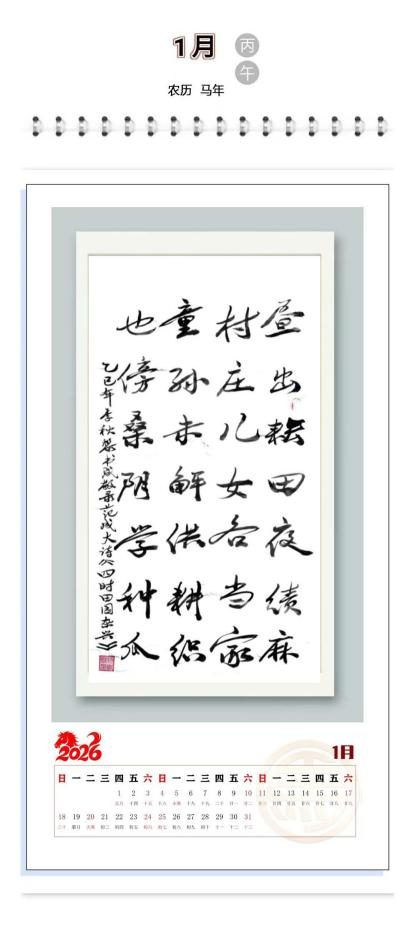 1月
丙
午
农历 马年
昼出耘田夜绩麻
村庄儿女各当家
童孙未解供耕织
也傍桑阴学种瓜
2026
1月
日 一 二 三 四 五 六 日 一 二 三 四 五 六 日 一 二 三 四 五 六
1 2 3 4 5 6 7 8 9 10 11 12 13 14 15 16 17
18 19 20 21 22 23 24 25 26 27 28 29 30 31